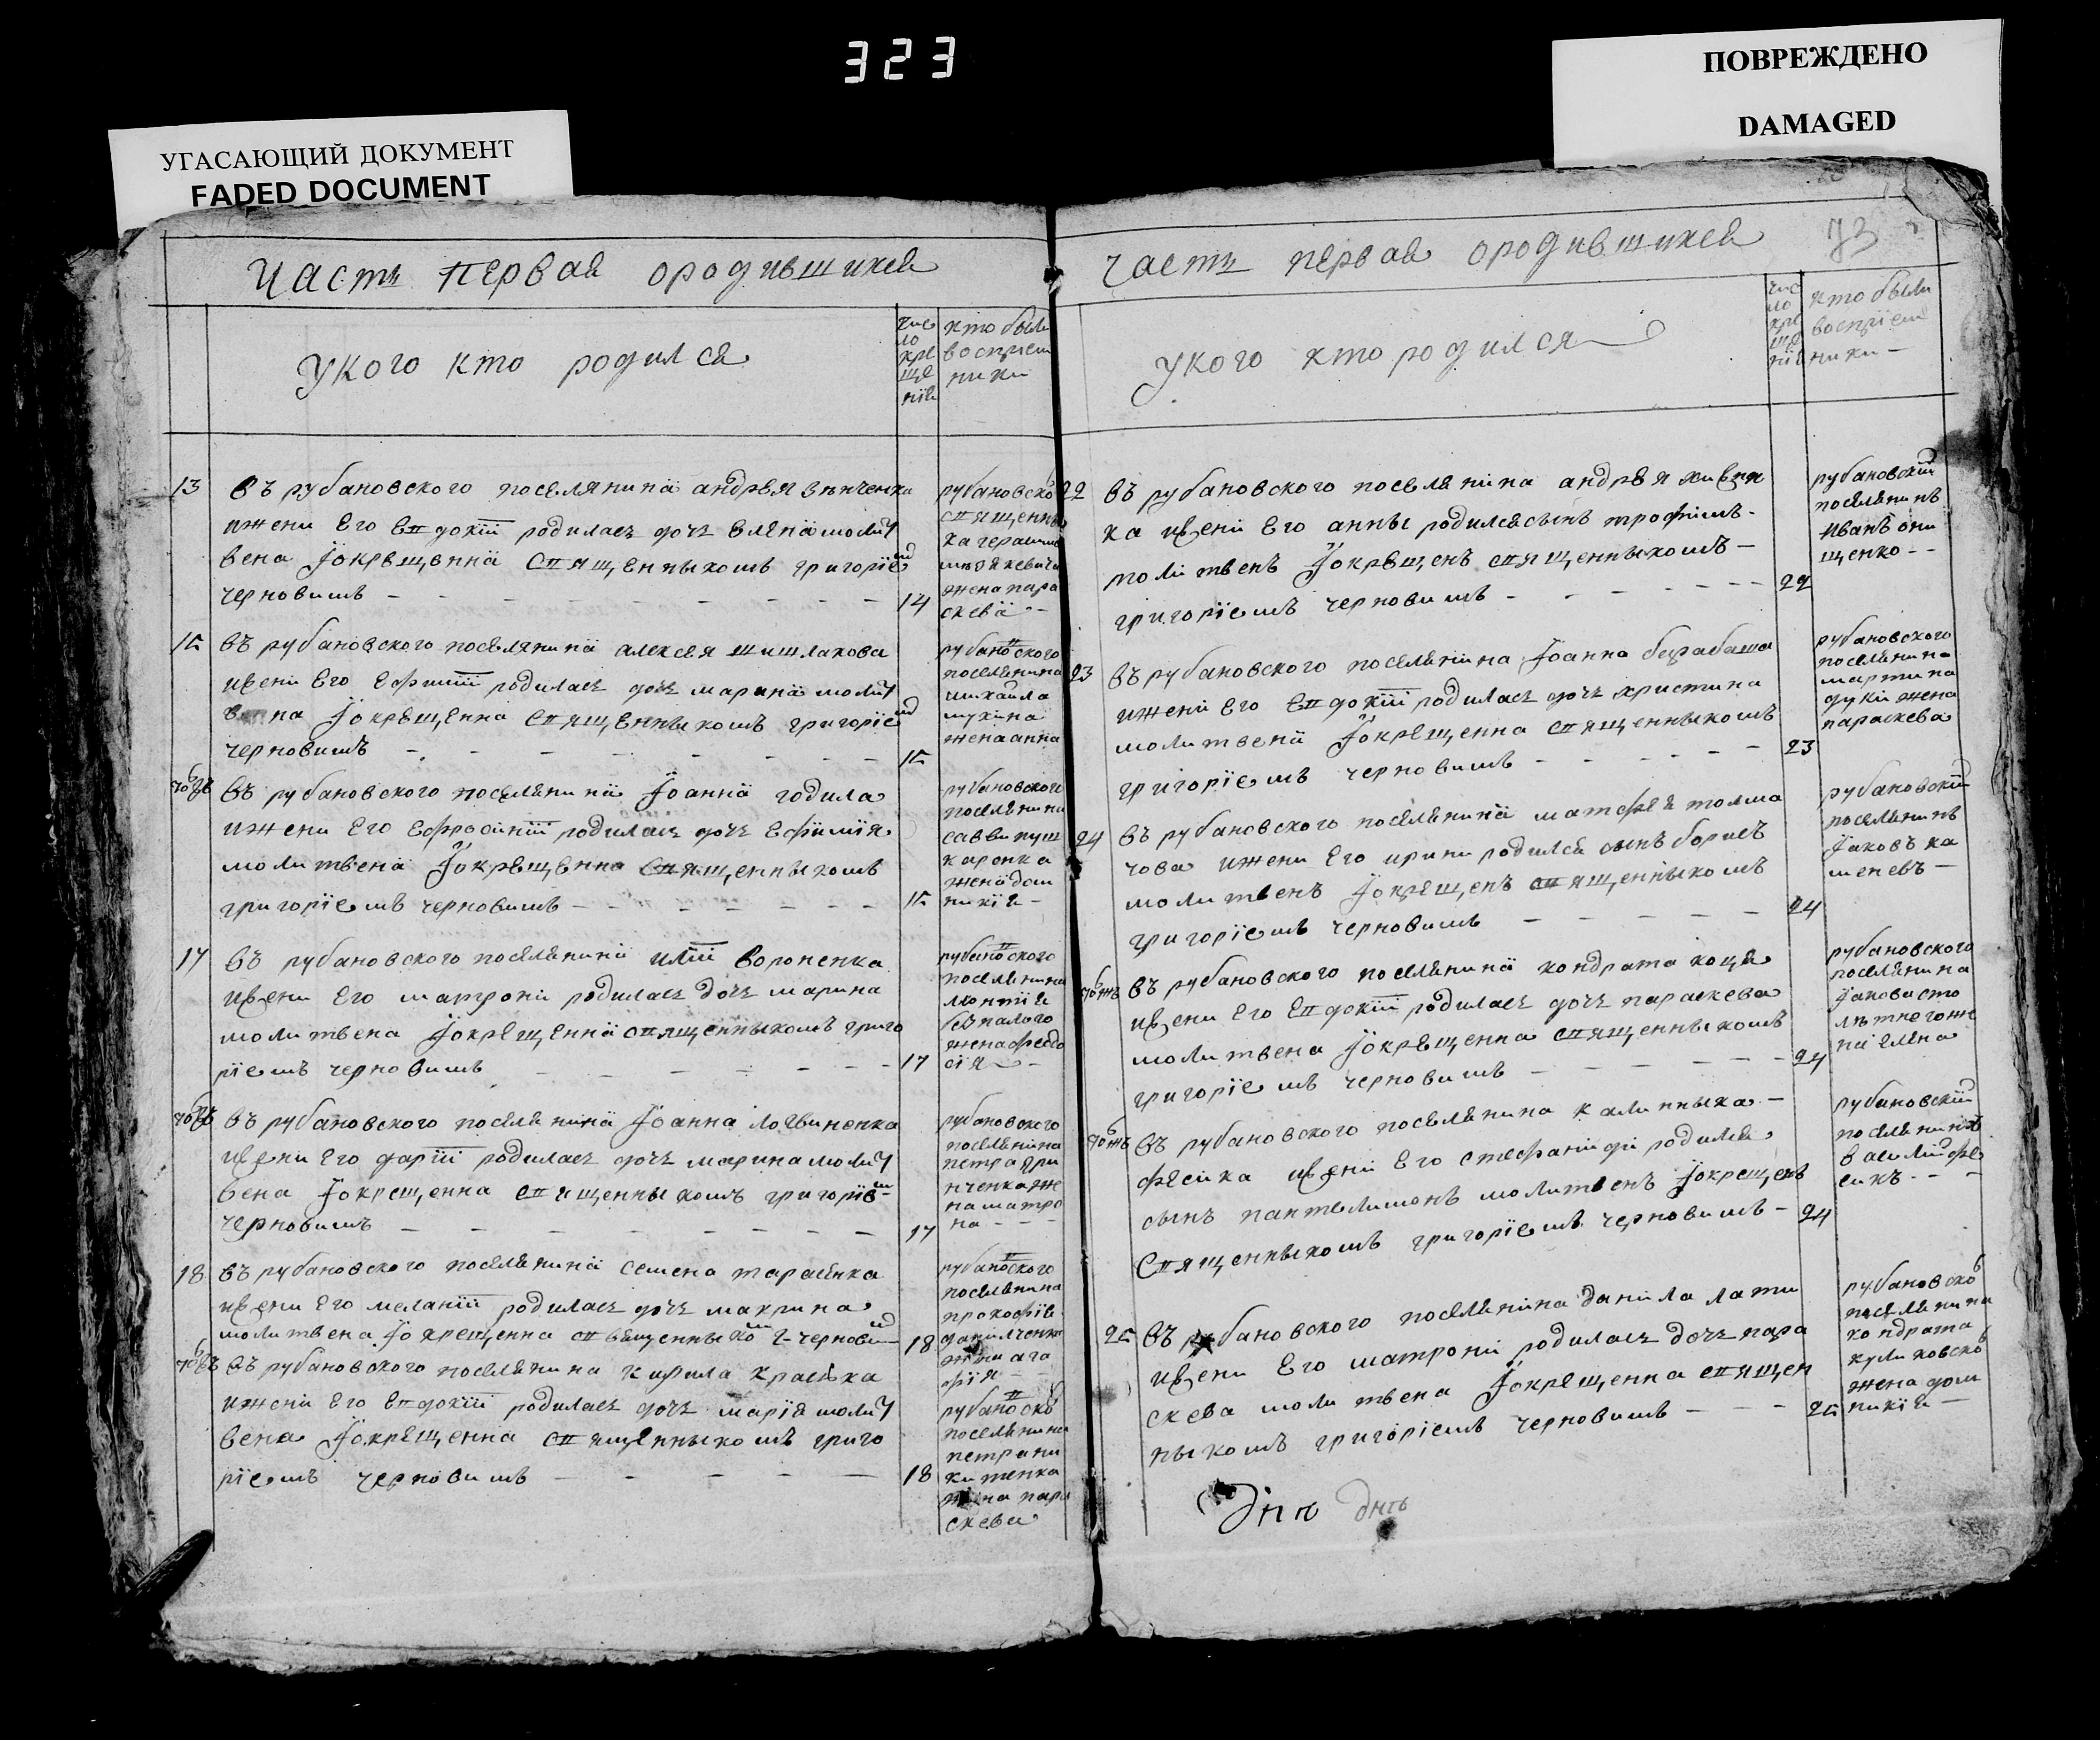 323
ПОВРЕЖДЕНО
DAMAGED
УГАСАЮЩИЙ ДОКУМЕНТ
FADED DOCUMENT
Часть первая ородившихся
У кого кто родился
число крещенія
кто были
воспріем
ники
13
въ рубановского поселянина андрея
ижени его евдокіи родилась дочь елена молит
вена Їокрещенна священникомъ григоріем
черновимъ
14
рубановско
священни
ка герасима
жена пара
скева
15
въ рубановского поселянина алексея шишлакова
ижени его ефиміи родилась дочь марина молит
вена Їокрещенна священникомъ григоріем
черновимъ
15
рубановского
поселянина
михаила
мухина
жена анна
въ рубановского поселянина Їоанна годила
ижени его ефросиніи родилась дочь ефимія
молитвена Їокрещенна священникомъ
григоріемъ черновимъ
15
рубановского
поселянина
саввы пуш
каренка
жена дом
никія
17
въ рубановского поселянина иліи вороненка
ижени его матроны родилась дочь марина
молитвена Їокрещенна священникомъ григо
ріемъ черновимъ
17
рубановского
поселянина
леонтія
безпалого
жена феодо
сія
въ рубановского поселянина Їоанна логвиненка
ижени его даріи родилась дочь марина молит
вена Їокрещенна священникомъ григоріем
черновимъ
17
рубановского
поселянина
петра гри
нченка же
на матро
на
18
въ рубановского поселянина семена тарасенка
ижени его меланіи родилась дочь макрина
молитвена Їокрещенна священником г черновим
18
рубановского
поселянина
прокофія
данилченка
жена ага
фія
въ рубановского поселянина кирила красюка
ижени его евдокіи родилась дочь марія молит
вена Їокрещенна священникомъ григо
ріемъ черновимъ
18
рубановско
поселянина
петра ни
китенка
жена пара
скева
Часть первая ородившихся
73
У кого кто родился
число крещенія
кто были
воспріем
ники
22
въ рубановского поселянина андрея
ка ижени его анны родился сынъ трофимъ
молитвенъ Їокрещенъ священникомъ
григоріемъ черновимъ
22
рубановскій
поселянинъ
иванъ они
щенко
23
въ рубановского поселянина Їоанна барабаша
ижени его евдокіи родилась дочь христина
молитвена Їокрещенна священникомъ
григоріемъ черновимъ
23
рубановского
поселянина
мартина
дуки жена
параскева
24
въ рубановского поселянина матфея толма
чова ижени его ирины родился сынъ борисъ
молитвенъ Їокрещенъ священникомъ
григоріемъ черновимъ
24
рубановскій
поселянинъ
Їаковъ ка
меневъ
въ рубановского поселянина кондрата коця
ижени его евдокіи родилась дочь параскева
молитвена Їокрещенна священникомъ
григоріемъ черновимъ
24
рубановского
поселянина
Їакова сто
лѣтного же
на елена
въ рубановского поселянина калинника
фесика ижени его стефаниди родился
сынъ пантелимонъ молитвенъ Їокрещенъ
священникомъ григоріемъ черновимъ
24
рубановскій
поселянинъ
василий фе
сикъ
25
въ рубановского поселянина данила лати
ижени его матроны родилась дочь пара
скева молитвена Їокрещенна священ
никомъ григоріемъ черновимъ
25
рубановско
поселянина
кондрата
куликовско
жена дом
никія